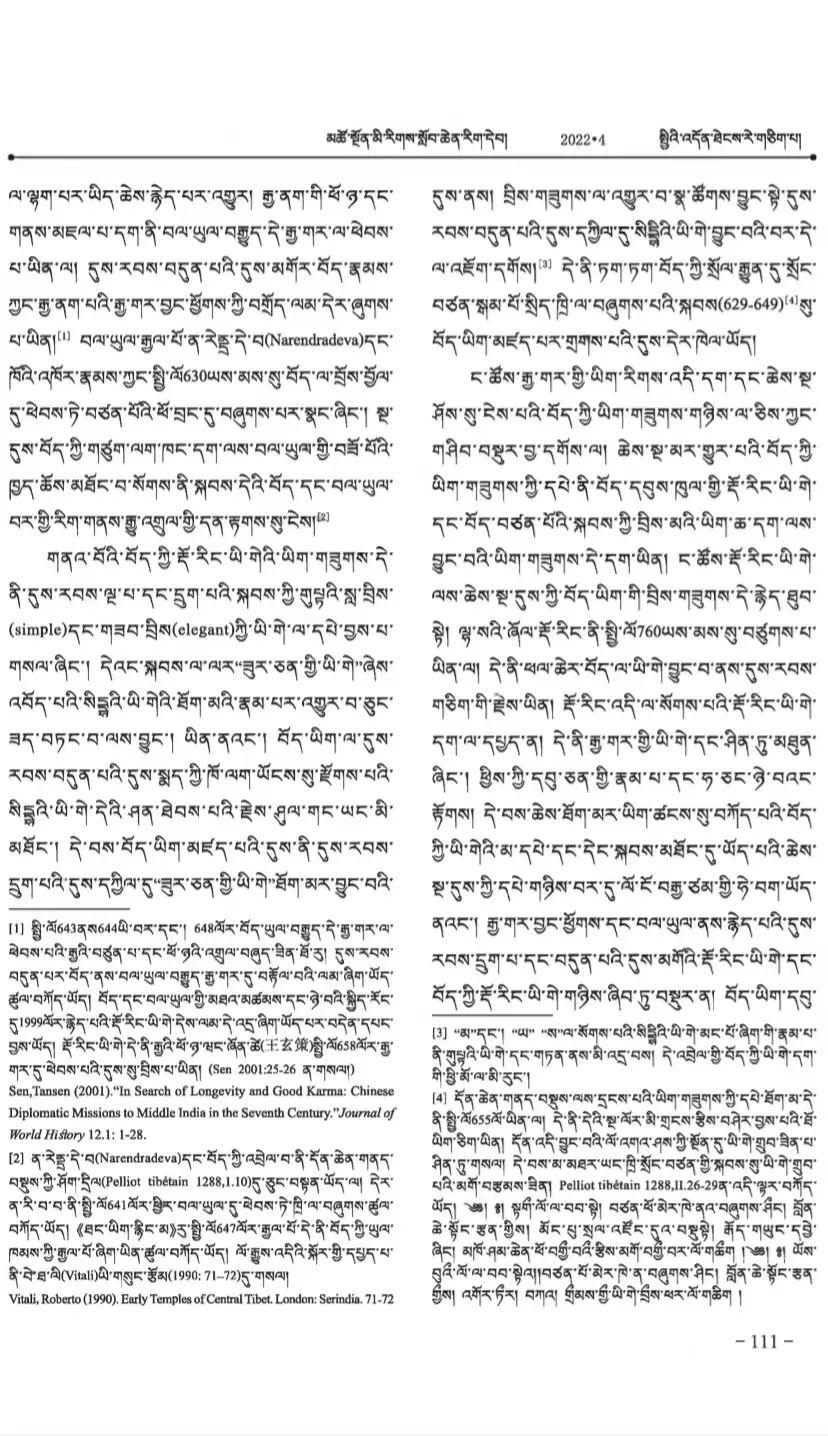 མཚོ་སྔོན་མི་རིགས་སློབ་ཆེན་རིག་དེབ། 2022•4 སྤྱིའི་འདོན་ཐེངས་རེ་གཅིག་པ།
ལ་ལྷག་པར་ཡིད་ཆེས་རྙེད་པར་འགྱུར། རྒྱ་ནག་གི་ཕོ་ཉ་དང་
གནས་མཇལ་པ་དག་ནི་བལ་ཡུལ་བརྒྱུད་དེ་རྒྱ་གར་ལ་ཕེབས་
པ་ཡིན་ལ། དུས་རབས་བདུན་པའི་དུས་མགོར་བོད་རྣམས་
ཀྱང་རྒྱ་ནག་པའི་རྒྱ་གར་བྱང་ཕྱོགས་ཀྱི་བགྲོད་ལམ་དེར་ཞུགས་
པ་ཡིན།[1] བལ་ཡུལ་རྒྱལ་པོ་ན་རེནྡྲ་དེ་བ(Narendradeva)དང་
ཁོའི་འཁོར་རྣམས་ཀྱང་སྤྱི་ལོ630ཡས་མས་སུ་བོད་ལ་བྲོས་བྱོལ་
དུ་ཕེབས་ཏེ་བཙན་པོའི་ཕོ་བྲང་དུ་བཞུགས་པར་སྣང་ཞིང་། སྔ་
དུས་བོད་ཀྱི་གཙུག་ལག་ཁང་དག་ལས་བལ་ཡུལ་གྱི་བཟོ་བོའི་
ཁྱད་ཆོས་མཐོང་བ་སོགས་ནི་སྐབས་དེའི་བོད་དང་བལ་ཡུལ་
བར་གྱི་རིག་གནས་རྒྱུ་འགྲུལ་གྱི་དན་རྟགས་སུ་ངེས།[2]
གནའ་བོའི་བོད་ཀྱི་རྡོ་རིང་ཡི་གེའི་ཡིག་གཟུགས་དེ་
ནི་དུས་རབས་ལྔ་པ་དང་དྲུག་པའི་སྐབས་ཀྱི་གུཔྟའི་སླ་བྲིས་
(simple)དང་གཟབ་བྲིས(elegant)ཀྱི་ཡི་གེ་ལ་དཔེ་བྱས་པ་
གསལ་ཞིང་། དེའང་སྐབས་ལ་ལར་“ཟུར་ཅན་གྱི་ཡི་གེ”ཞེས་
འབོད་པའི་སིདྡྷའི་ཡི་གེའི་ཐོག་མའི་རྣམ་པར་འགྱུར་བ་ཅུང་
ཟད་བཏང་བ་ལས་བྱུང་། ཡིན་ནའང་། བོད་ཡིག་ལ་དུས་
རབས་བདུན་པའི་དུས་སྨད་ཀྱི་ཁོ་ལག་ཡོངས་སུ་རྫོགས་པའི་
སིདྡྷའི་ཡི་གེ་དེའི་ཤན་ཐེབས་པའི་རྗེས་ཤུལ་གང་ཡང་མི་
མཐོང་། དེ་བས་བོད་ཡིག་མཛད་པའི་དུས་ནི་དུས་རབས་
དྲུག་པའི་དུས་དཀྱིལ་དུ་“ཟུར་ཅན་གྱི་ཡི་གེ”ཐོག་མར་བྱུང་བའི་
[1] སྤྱི་ལོ643ནས644ཡི་བར་དང་། 648ལོར་བོད་ཡུལ་བརྒྱུད་དེ་རྒྱ་གར་ལ་
ཕེབས་པའི་རྒྱའི་བཙུན་པ་དང་ཕོ་ཉའི་འགྲུལ་བཞུད་ཟིན་ཐོ་རུ། དུས་རབས་
བདུན་པར་བོད་ནས་བལ་ཡུལ་བརྒྱུད་རྒྱ་གར་དུ་བརྟོལ་བའི་ལམ་ཞིག་ཡོད་
ཚུལ་བཀོད་ཡོད། བོད་དང་བལ་ཡུལ་གྱི་མཐའ་མཚམས་དང་ཉེ་བའི་སྐྱིད་རོང་
དུ1999ལོར་རྙེད་པའི་རྡོ་རིང་ཡི་གེ་དེས་ལམ་དེ་འདྲ་ཞིག་ཡོད་པར་བདེན་དཔང་
བྱས་ཡོད། རྡོ་རིང་ཡི་གེ་དེ་ནི་རྒྱའི་ཕོ་ཉ་ཝང་ཞོན་ཚེ(王玄策)སྤྱི་ལོ658ལོར་རྒྱ་
གར་དུ་ཕེབས་པའི་དུས་སུ་བྲིས་པ་ཡིན། (Sen 2001:25-26 ན་གསལ།)
Sen,Tansen (2001).“In Search of Longevity and Good Karma: Chinese
Diplomatic Missions to Middle India in the Seventh Century.”Journal of
World History 12.1: 1-28.
[2] ན་རེནྡྲ་དེ་བ(Narendradeva)དང་བོད་ཀྱི་འབྲེལ་བ་ནི་དོན་ཆེན་གནད་
བསྡུས་ཀྱི་ཤོག་དྲིལ(Pelliot tibétain 1288,1.10)དུ་ཅུང་བསྟན་ཡོད་ལ། དེར་
ན་རི་བ་བ་ནི་སྤྱི་ལོ641ལོར་ཕྱིར་བལ་ཡུལ་དུ་ཕེབས་ཏེ་ཁྲི་ལ་བཞུགས་ཚུལ་
བཀོད་ཡོད། 《ཐང་ཡིག་རྙིང་མ》རུ་སྤྱི་ལོ647ལོར་རྒྱལ་པོ་དེ་ནི་བོད་ཀྱི་ཡུལ་
ཁམས་ཀྱི་རྒྱལ་པོ་ཞིག་ཡིན་ཚུལ་བཀོད་ཡོད། ལོ་རྒྱུས་འདིའི་སྐོར་གྱི་དཔྱད་པ་
ནི་བེ་ཐ་ལི(Vitali)ཡི་གསུང་རྩོམ(1990: 71–72)དུ་གསལ།
Vitali, Roberto (1990). Early Temples of Central Tibet. London: Serindia. 71-72
དུས་ནས། བྲིས་གཟུགས་ལ་འགྱུར་བ་སྣ་ཚོགས་བྱུང་སྟེ་དུས་
རབས་བདུན་པའི་དུས་དཀྱིལ་དུ་སིདྡྷིའི་ཡི་གེ་བྱུང་བའི་བར་དེ་
ལ་འཇོག་དགོས།[3] དེ་ནི་ཏག་ཏག་བོད་ཀྱི་སྲོལ་རྒྱུན་དུ་སྲོང་
བཙན་སྒམ་པོ་སྲིད་ཁྲི་ལ་བཞུགས་པའི་སྐབས(629-649)[4]སུ་
བོད་ཡིག་མཛད་པར་གྲགས་པའི་དུས་དེར་ཁེལ་ཡོད།
ང་ཚོས་རྒྱ་གར་གྱི་ཡིག་རིགས་འདི་དག་དང་ཆེས་སྔ་
ཤོས་སུ་ངེས་པའི་བོད་ཀྱི་ཡིག་གཟུགས་གཉིས་ལ་ཅིས་ཀྱང་
གཤིབ་བསྡུར་བྱ་དགོས་ལ། ཆེས་སྔ་མར་གྱུར་པའི་བོད་ཀྱི་
ཡིག་གཟུགས་ཀྱི་དཔེ་ནི་བོད་དབུས་ཁུལ་གྱི་རྡོ་རིང་ཡི་གེ་
དང་བོད་བཙན་པོའི་སྐབས་ཀྱི་བྲིས་མའི་ཡིག་ཆ་དག་ལས་
བྱུང་བའི་ཡིག་གཟུགས་དེ་དག་ཡིན། ང་ཚོས་རྡོ་རིང་ཡི་གེ་
ལས་ཆེས་སྔ་དུས་ཀྱི་བོད་ཡིག་གི་བྲིས་གཟུགས་དེ་རྙེད་ཐུབ་
སྟེ། ལྷ་སའི་ཞོལ་རྡོ་རིང་ནི་སྤྱི་ལོ760ཡས་མས་སུ་བཙུགས་པ་
ཡིན་ལ། དེ་ནི་ཕལ་ཆེར་བོད་ལ་ཡི་གེ་བྱུང་བ་ནས་དུས་རབས་
གཅིག་གི་རྗེས་ཡིན། རྡོ་རིང་འདི་ལ་སོགས་པའི་རྡོ་རིང་ཡི་གེ་
དག་ལ་དཔྱད་ན། དེ་ནི་རྒྱ་གར་གྱི་ཡི་གེ་དང་ཤིན་ཏུ་མཐུན་
ཞིང་། ཕྱིས་ཀྱི་དབུ་ཅན་གྱི་རྣམ་པ་དང་ཧ་ཅང་ཉེ་བའང་
རྟོགས། དེ་བས་ཆེས་ཐོག་མར་ཡིག་ཚངས་སུ་བཀོད་པའི་བོད་
ཀྱི་ཡི་གེའི་མ་དཔེ་དང་དེང་སྐབས་མཐོང་དུ་ཡོད་པའི་ཆེས་
སྔ་དུས་ཀྱི་དཔེ་གཉིས་བར་དུ་ལོ་ངོ་བརྒྱ་ཙམ་གྱི་ཧེ་བག་ཡོད་
ནའང་། རྒྱ་གར་བྱང་ཕྱོགས་དང་བལ་ཡུལ་ནས་རྙེད་པའི་དུས་
རབས་དྲུག་པ་དང་བདུན་པའི་དུས་མགོའི་རྡོ་རིང་ཡི་གེ་དང་
བོད་ཀྱི་རྡོ་རིང་ཡི་གེ་གཉིས་ཞིབ་ཏུ་བསྡུར་ན། བོད་ཡིག་དབུ་
[3] “མ་དང་། “ཡ” “ས”ལ་སོགས་པའི་སིདྡྷིའི་ཡི་གེ་མང་པོ་ཞིག་གི་རྣམ་པ་
ནི་གུཔྟའི་ཡི་གེ་དང་གཏན་ནས་མི་འདྲ་བས། དེ་འབྲེལ་གྱི་བོད་ཀྱི་ཡི་གེ་དག་
གི་ཕྱི་མོ་ལ་མི་རུང་།
[4] དོན་ཆེན་གནད་བསྡུས་ལས་དྲངས་པའི་ཡིག་གཟུགས་ཀྱི་དཔེ་ཐོག་མ་དེ་
ནི་སྤྱི་ལོ655ལོ་ཡིན་ལ། དེ་ནི་དེའི་སྔ་ལོར་མི་གྲངས་རྩིས་བཤེར་བྱས་པའི་ཐོ་
ཡིག་ཅིག་ཡིན། དོན་འདི་བྱུང་བའི་ལོ་འགའ་ཤས་ཀྱི་སྔོན་དུ་ཡི་གེ་གྲུབ་ཟིན་པ་
ཤིན་ཏུ་གསལ། དེ་བས་མ་མཐར་ཡང་ཁྲི་སྲོང་བཙན་གྱི་སྐབས་སུ་ཡི་གེ་གྲུབ་
པའི་མགོ་བརྩམས་ཟིན། Pelliot tibétain 1288,II.26-29ན་འདི་ལྟར་བཀོད་
ཡོད། ༄༅། །། སྟགི་ལོ་ལ་བབ་སྟེ། བཙན་ཕོ་མེར་ཁེ་ནའ་བཞུགས་ཤིང། བློན་
ཆེ་སྟོང་རྩན་གྱིས། མོང་པུ་སྲལ་འཛོང་དུའ་བསྡུསྟེ། རྒོད་གཡུང་དབྱེ་
ཞིང། མཁོ་ཤམ་ཆེན་ཕོ་བགྱི་བའི་རྩིས་མགོ་བགྱི་བར་ལོ་གཆིག །༄༅། །། ཡོས་
བུའི་ལོ་ལ་བབ་སྟེའ།།བཙན་པོ་མེར་ཁེ་ན་བཞུགས་ཤིང། བློན་ཆེ་སྟོང་རྩན་
གྱིས། འགོར་ཏིར། བཀའ། གྲིམས་གྱི་ཡི་གེ་བྲིས་ཕར་ལོ་གཆིག །
– 111 –